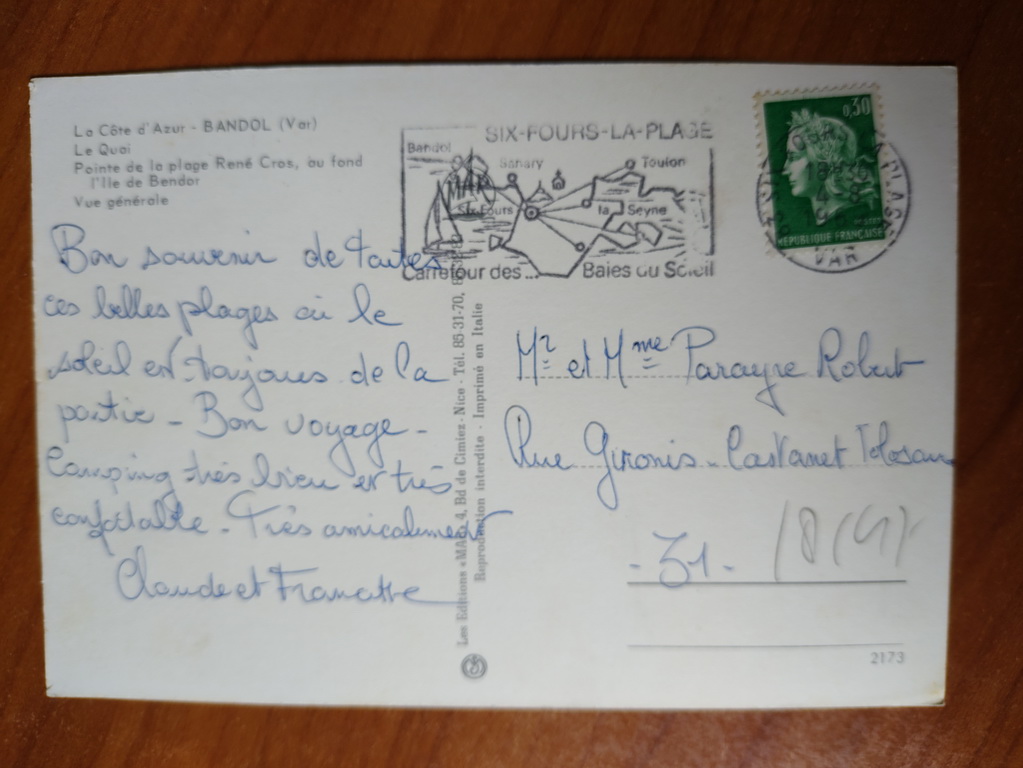 La Côte d'Azur - BANDOL (Var)
Le Quai
Pointe de la plage René Cros, au fond
l'Ile de Bendor
Vue générale
SIX-FOURS-LA-PLAGE
Bandol
Sanary
Toulon
Six Fours
la Seyne
Carrefour des... Baies du Soleil
0,30
POSTES
REPUBLIQUE FRANÇAISE
VAR
Bon souvenir de toutes
ces belles plages où le
soleil est toujours de la
partie - Bon voyage -
Camping très bien et très
confortable - Très amicalement
Claude et Francette
Les Editions «MAR», 4, Bd de Cimiez - Nice - Tél. 85-31-70,
Reproduction interdite - Imprimé en Italie
Mr et Mme Parayre Robert
Rue Gironis - Castanet Tolosan
- 31 -
2173